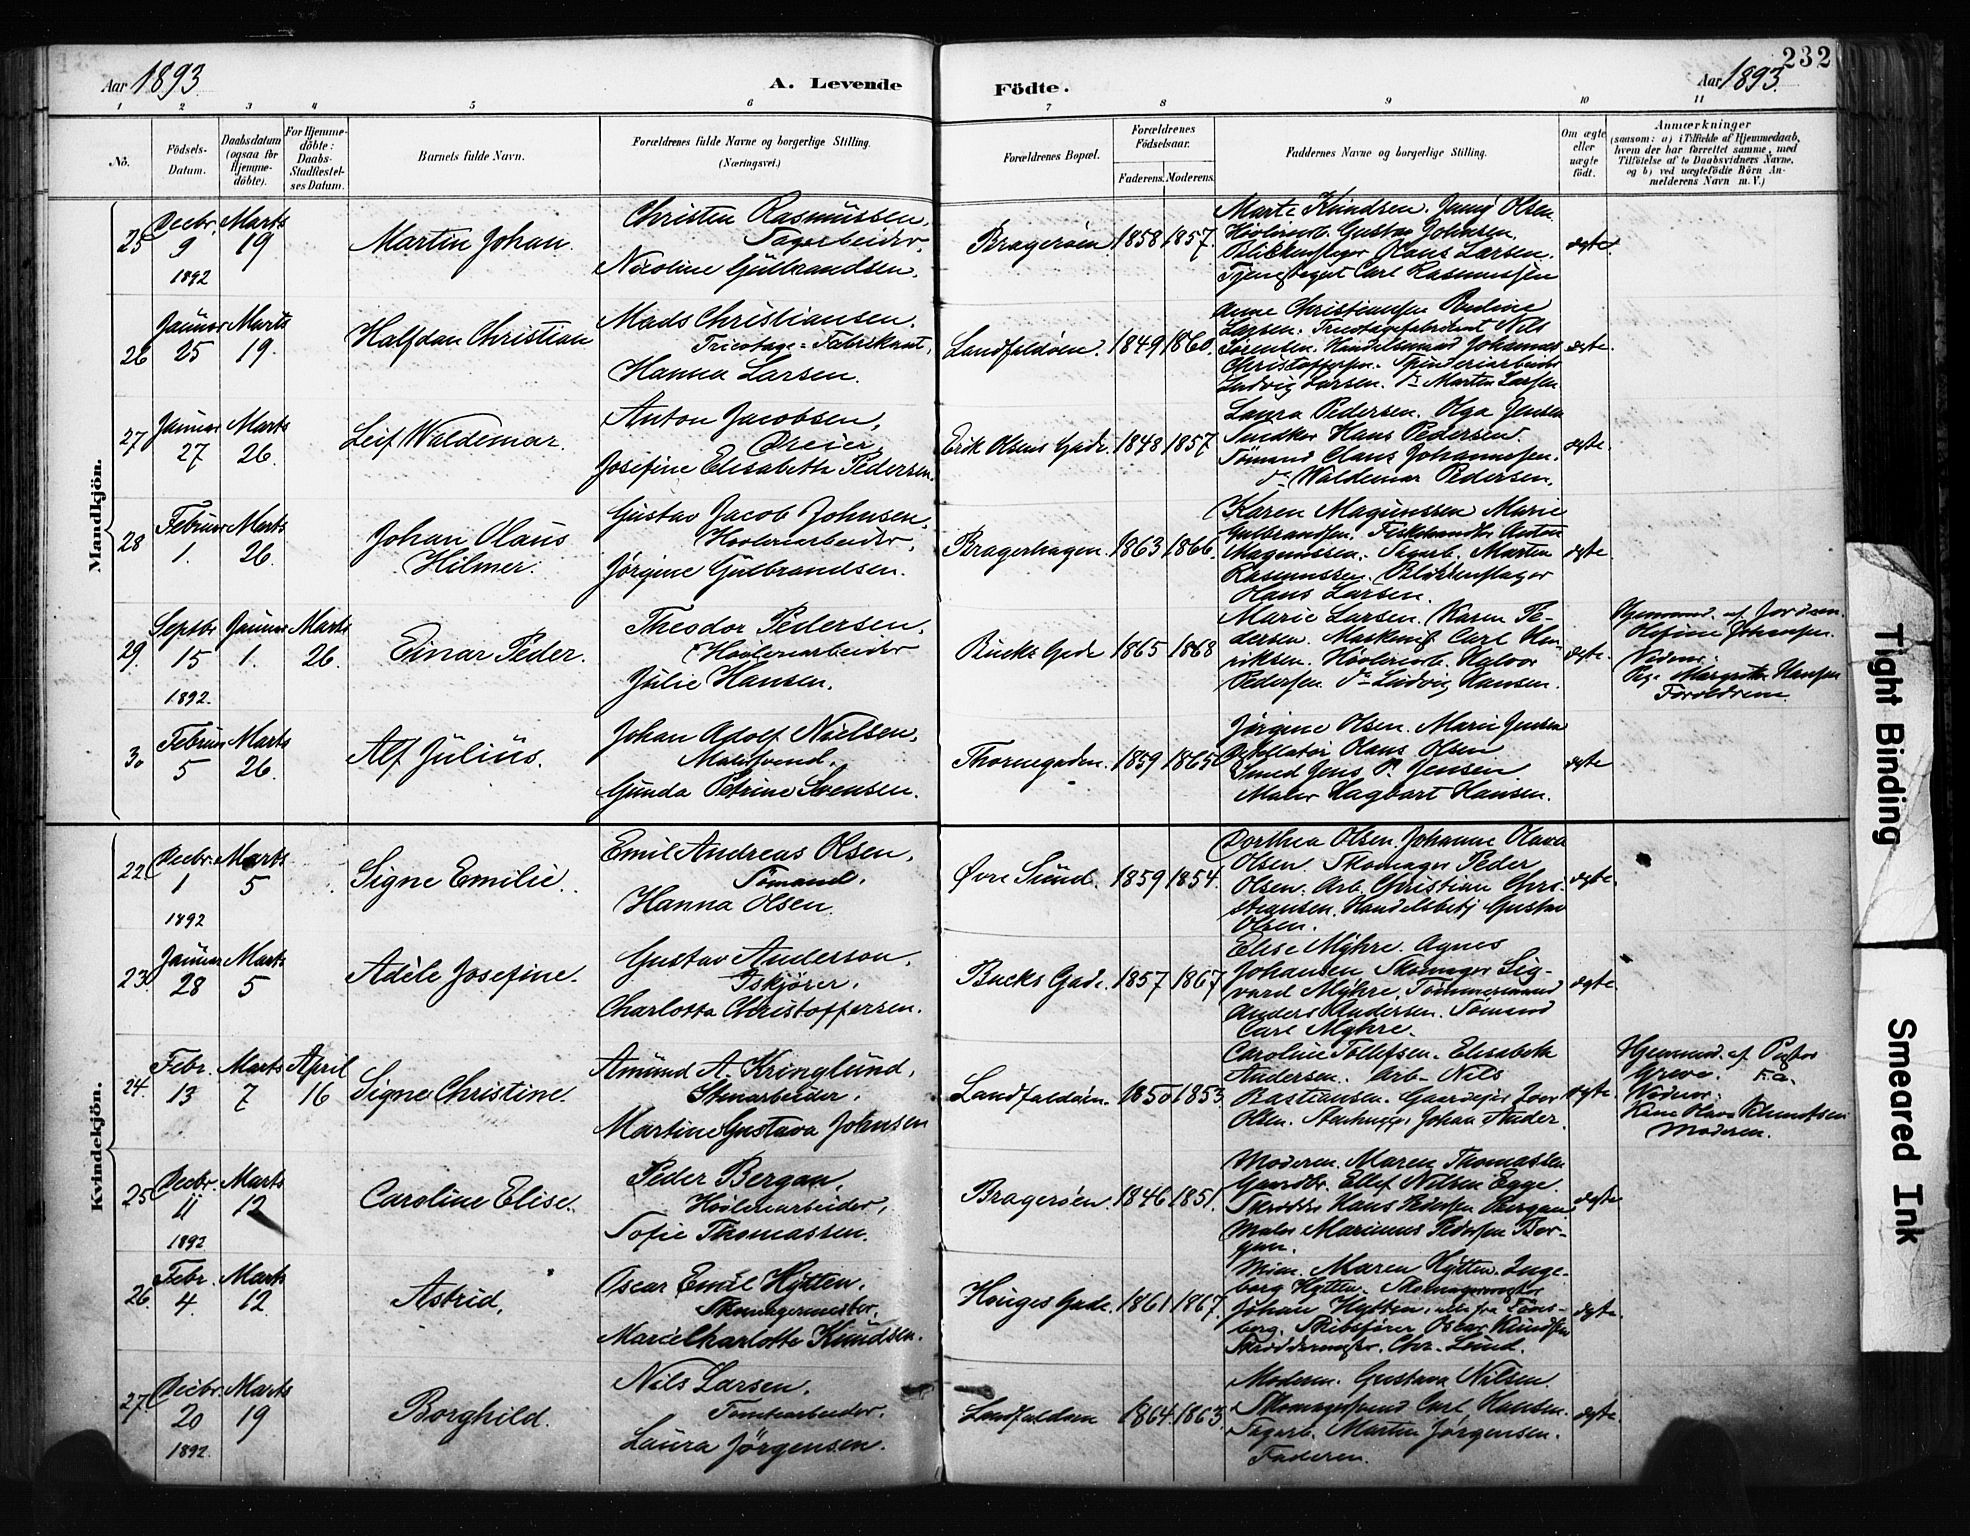 232
Aar 1893 A. Levende Födte. Aar 1893.
1 2 3 4 5 6 7 8 9 10 11
No.
Födsels-Datum.
Daabsdatum (ogsaa for Hjemme-döbte).
For Hjemme-döbte: Daabs-Stadfæstel-ses Datum.
Barnets fulde Navn.
Forældrenes fulde Navne og borgerlige Stilling. (Næringsvei.)
Forældrenes Bopæl.
Forældrenes Födselsaar.
Faderens. Moderens.
Faddernes Navne og borgerlige Stilling.
Om ægte eller uægte födt.
Anmærkninger
(saasom: a) i Tilfælde af Hjemmedaab, hvem der har forrettet samme, med Tilföielse af to Daabsvidners Navne, og b) ved uægtefödte Börn An-melderens Navn m. V.)
Mandkjön.
25 Decbr. 9 1892 Marts 19
Martin Johan.
Christen Rasmussen,
Sagarbeider,
Nicoline Gulbrandsen.
Bragerøen 1858 1857.
Marte Knudsen. Jenny Olsen.
Høvleriarb. Gustav Johnsen.
Blikkenslager Hans Larsen.
Carl Rasmussen
ægte.
26 Januar 25 Marts 19.
Halfdan Christian
Mads Christiansen.
Tricotage-Fabrikant,
Hanna Larsen.
Landfaldøen. 1849 1860.
Anne Christiansen Pauline
Larsen. Tricotagefabrikant Nils
Sørensen. Handelsmand Johannes
Christoffersen. Spinderiarbeider
Ludvig Larsen. do Martin Larsen
ægte.
27 Januar 27 Marts 26.
Leif Waldemar.
Anton Jacobsen,
Dreier,
Josefine Elisabeth Pedersen.
Erik Olsens Gade. 1848 1857.
Laura Pedersen. Olga Jensen
Snedker Hans Pedersen.
Sømand Claus Johannssen.
do Waldemar Pedersen.
ægte.
28 Februar 1. Marts 26.
Johan Olaus
Hilmer.
Gustav Jacob Johnsen,
Høvleriarbeider,
Jørgine Gulbrandsen.
Bragerhagen. 1863 1866.
Karen Magnussen Marie
Gulbrandsen. Fiskehandler Anton
Magnussen. Sagarb. Martin
Rasmussen. Blikkenslager
Hans Larsen.
ægte.
29. Septbr 15 1892. Januar 1. Marts 26.
Einar Peder.
Theodor Pedersen.
Høvleriarbeider
Julie Hansen.
Bucks Gade 1865 1868
Marie Larsen. Karen Pe-
dersen. Carl Hen-
riksen. Høvleriarb. Halvor
Pedersen. do Ludvig Hansen.
ægte.
af Jordem.
Olefine Johansen.
Vidner
Margrethe Hansen
Forældrene
30 Februar 5 Marts 26.
Alf Julius.
Johan Adolf Nielsen,
Malersvend.
Gunda Petrine Svensen.
Thornegaden. 1859 1865
Jørgine Olsen. Marie Jensen
Olaus Olsen
Smed Jens P. Jensen
Maler Hagbart Hansen.
ægte
Kvindekjön.
22. Decbr. 1 1892 Marts 5
Signe Emilie.
Emil Andreas Olsen,
Sømand.
Hanna Olsen
Øvre Sund. 1859 1854.
Dorthea Olsen. Johanne Olava
Olsen. Skomager Peder
Olsen. Arb. Christian Chri-
stiansen. Handelsbetj Gustav
Olsen.
ægte.
23. Januar 28 Marts 5
Adèle Josefine.
Gustav Anderson,
Iskjører.
Charlotta Christoffersen.
Bucks Gade. 1857 1867
Elise Myhre. Agnes
Johansen. Skomager Sig-
vard Myhre. Tømmermand
Anders Andersen. Sømand
Carl Myhre.
ægte.
24. Febr. 13 Marts 7 April 16
Signe Christine.
Amund A. Kringlund,
Stenarbeider.
Martine Gustava Johnsen
Landfaldøen. 1850 1853.
Caroline Tollefsen. Elisabeth
Andersen. Arb. Nils
Bastiansen. Gaardejer Iver
Olsen. Stenhugger Johan Ander.
ægte.
Hjemmed. af Pastor
Greve. F.a.
Vidner:
Moderen.
25 Decbr. 11 1892 Marts 12
Caroline Elise.
Peder Bergan,
Høvleriarbeider,
Sofie Thomassen.
Bragerøen. 1846 1851.
Moderen. Maren Thomassen
Gaardbr. Ellef Nilsen Egge.
Skrædder Hans Pedersen Bergan
Maler Marinus Pedersen Ber-
gan.
ægte
26. Febr. 4 Marts 12.
Astrid,
Oscar Emil Hytten,
Skomagermester,
Marie Charlotte Knudsen.
Houges Gade. 1861 1867.
Maren Hytten. Inge-
borg Hytten. Skomagermester
Johan Hytten, alle fra Tøns-
berg. Skibsfører Oscar Knudsen
Skræddermester Chr. Lund.
ægte.
27. Decbr. 20 1892. Marts 19
Borghild.
Nils Larsen.
Tomtearbeider.
Laura Jørgensen.
Landfaldøen 1864. 1863.
Moderen. Gustava Nilsen.
Skomagersvend Carl Hansen.
Sagarb. Martin Jørgensen.
Faderen.
ægte.
Tight Binding
Smeared Ink